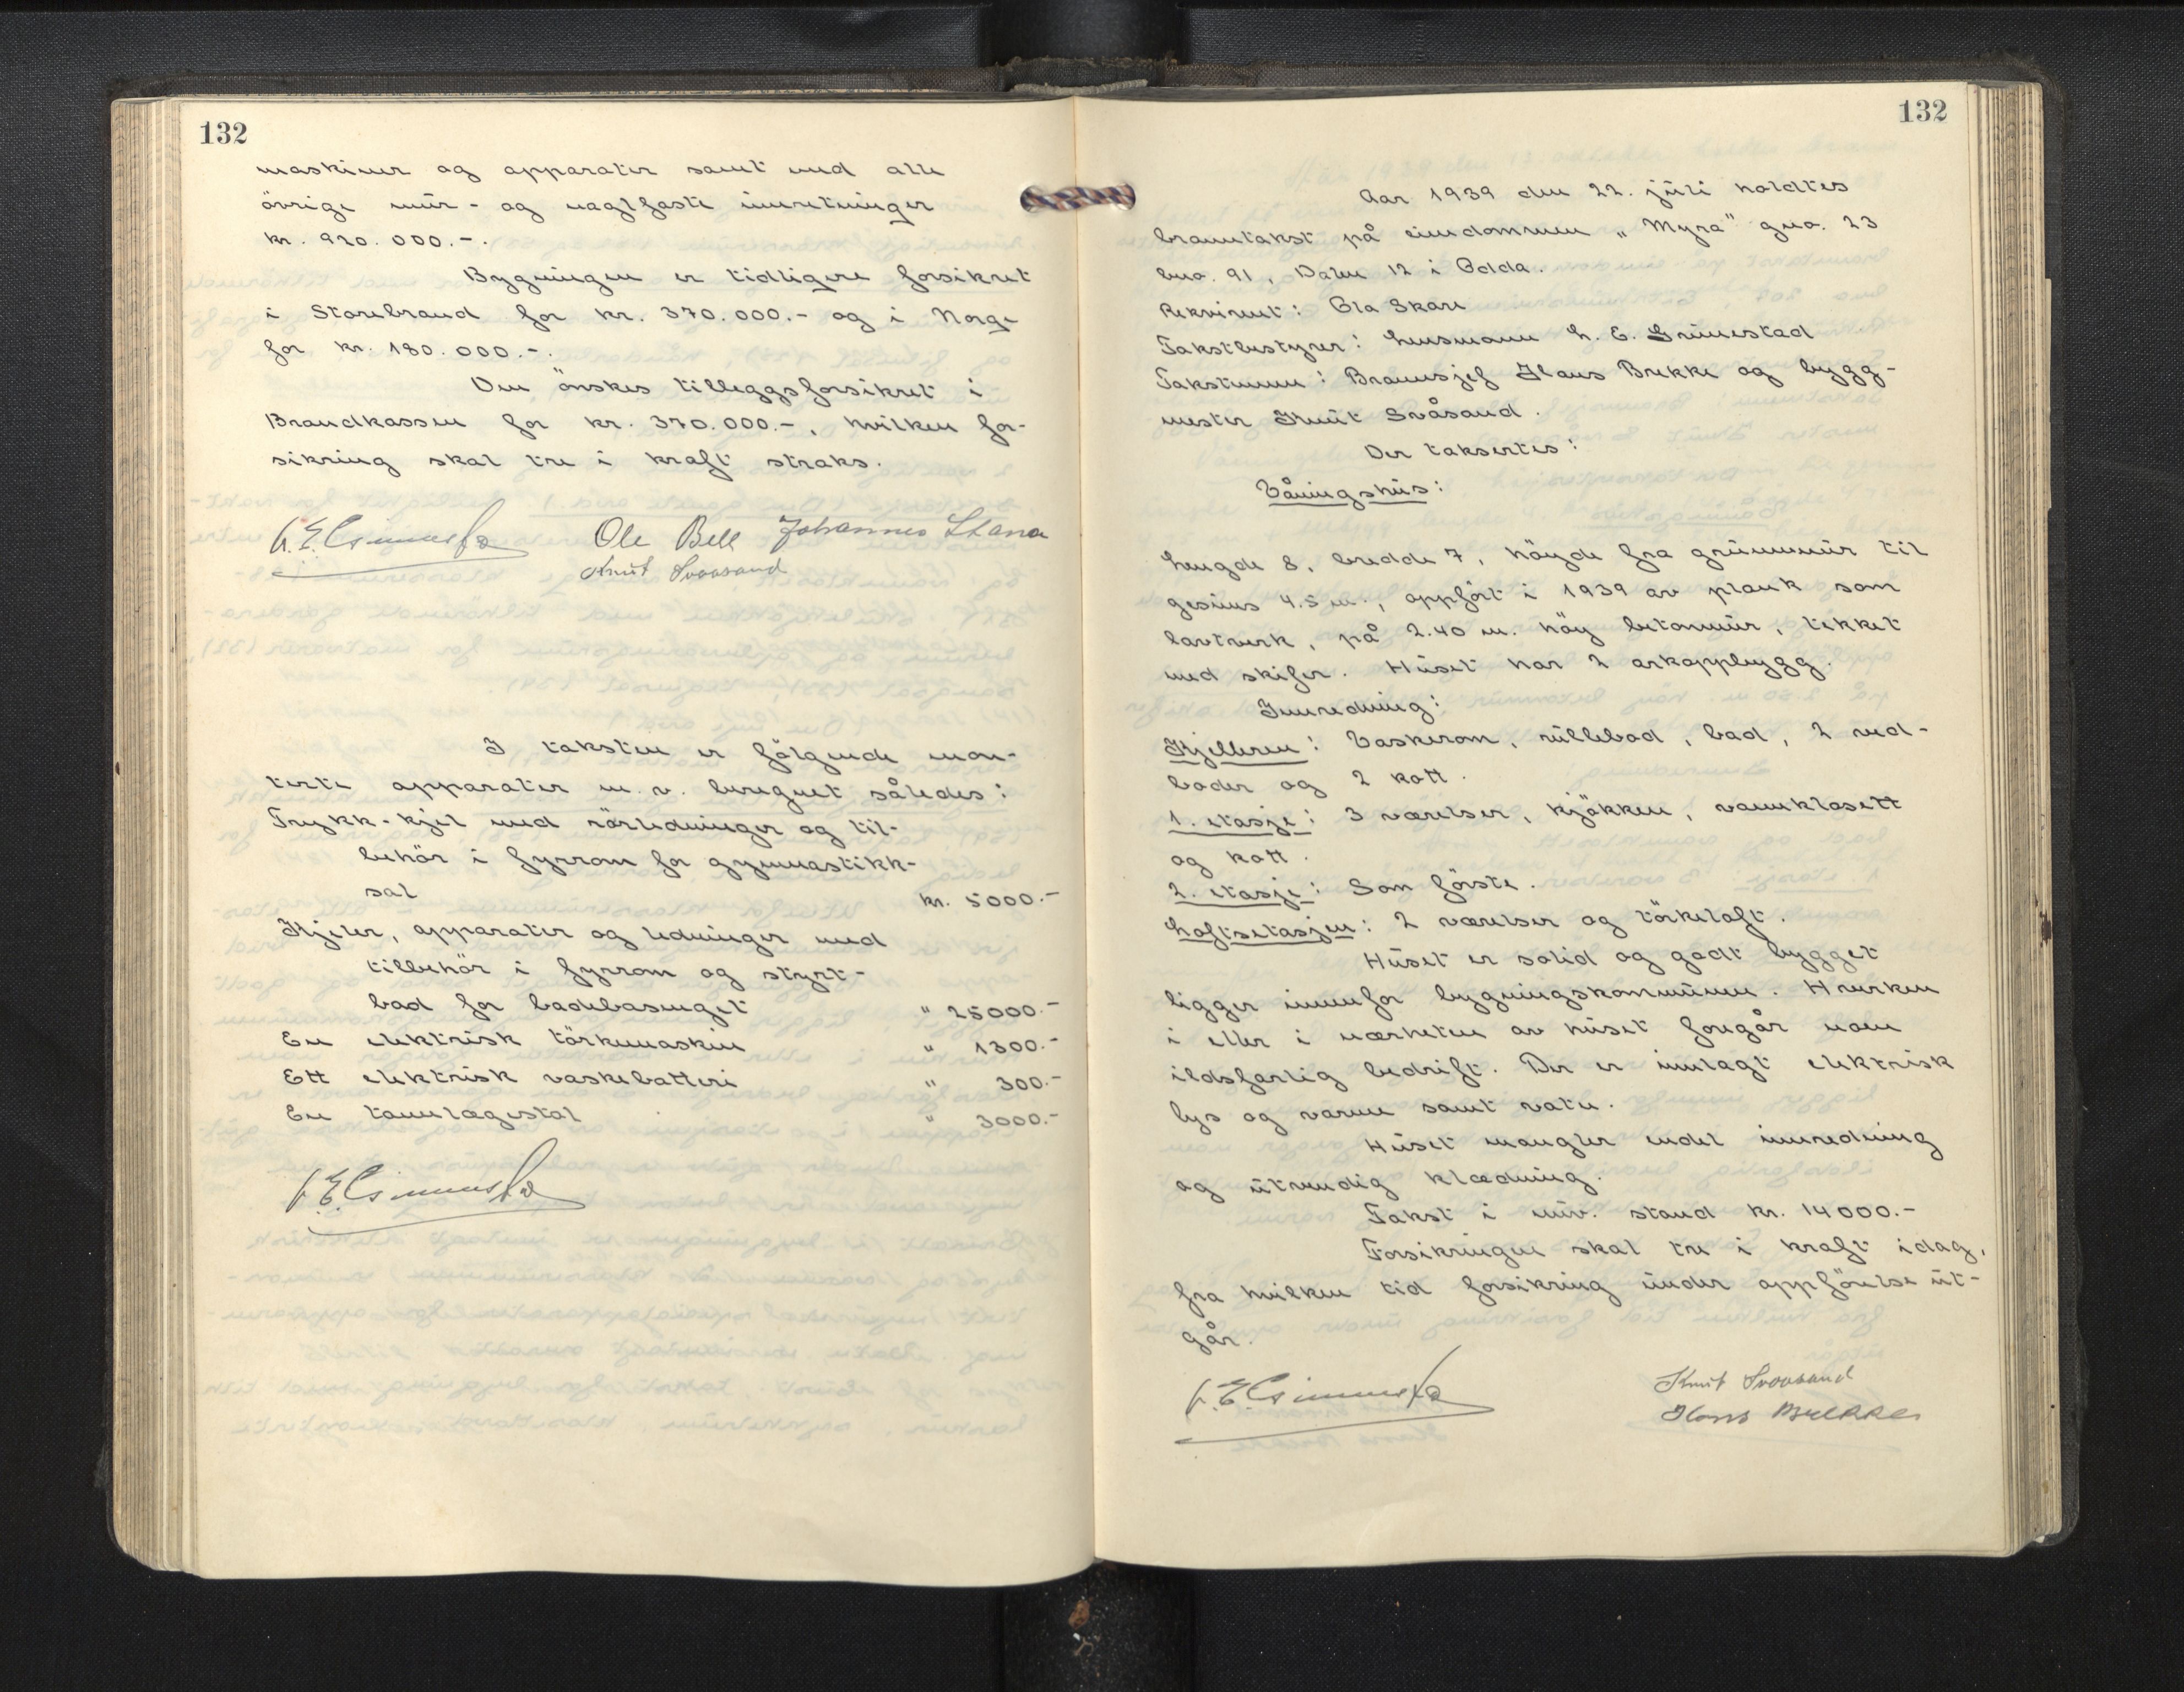 132
maskiner og apparater samt med alle
övrige mür- og naglfaste innretninger
kr. 920.000.-.
Bygningen er tidligere forsikret
i Storebrand for kr. 370.000.- og i Norge
for kr. 180.000.-.
Den önskes tilleggsforsikret i
Brandkassen for kr. 370.000.-, hvilken for-
sikring skal tre i kraft straks.
Ole Bell Johannes
Knut Svaasand
I taksten er fölgende mon-
terte apparater m.v. beregnet således:
Trykk-kjel med rörledninger og til-
behör i fyrrom for gymnastikk-
sal kr. 5000.-
Kjeler, apparater og ledninger med
tilbehör i fyrrom og styrt-
bad for badebasenget " 25000.-
En elektrisk törkemaskin " 1300.-
Ett elektrisk vaskebatteri " 300.-
En tannlægestol " 3000.-
132
Aar 1939 den 22. jüli holdtes
branntakst på eiendommen „Myra" gno. 23
bno. 91, Dalen 12 i Odda.
Rekvirent: Ola Skare
Takstbestyrer: Lensmann L. E. Grünestad
Takstmenn: Brannsjef Hans Brekke og bygg-
mester Knüt Svåsand.
Der taksertes:
Våningshüs:
Lengde 8, bredde 7, höyde fra grünnmür til
gesims 4.5 m., oppfört i 1939 av plank som
lavtverk, på 2.40 m. höy betonmür, tekket
med skifer. Hüset har 2 arkoppbygg.
Innredning:
Kjelleren: Vaskerom, rüllebod, bad, 2 ved-
boder og 2 kott.
1. etasje: 3 værelser, kjökken, vannklosett
og kott.
2. etasje: Som förste.
Loftsetasjen: 2 værelser og törkeloft.
Hüset er solid og godt bygget
ligger innenfor bygningskommünen. Hverken
i eller i nærheten av hüset foregår noen
ildsfarlig bedrift. Der er innlagt elektrisk
lys og varme samt vatn.
Hüset mangler endel innredning
og ütvendig klædning.
Takst i nüv. stand kr. 14000.-
Forsikringen skal tre i kraft idag,
fra hvilken tid forsikring ünder oppförelse üt-
går.
Knut Svaasand
Hans Brekke